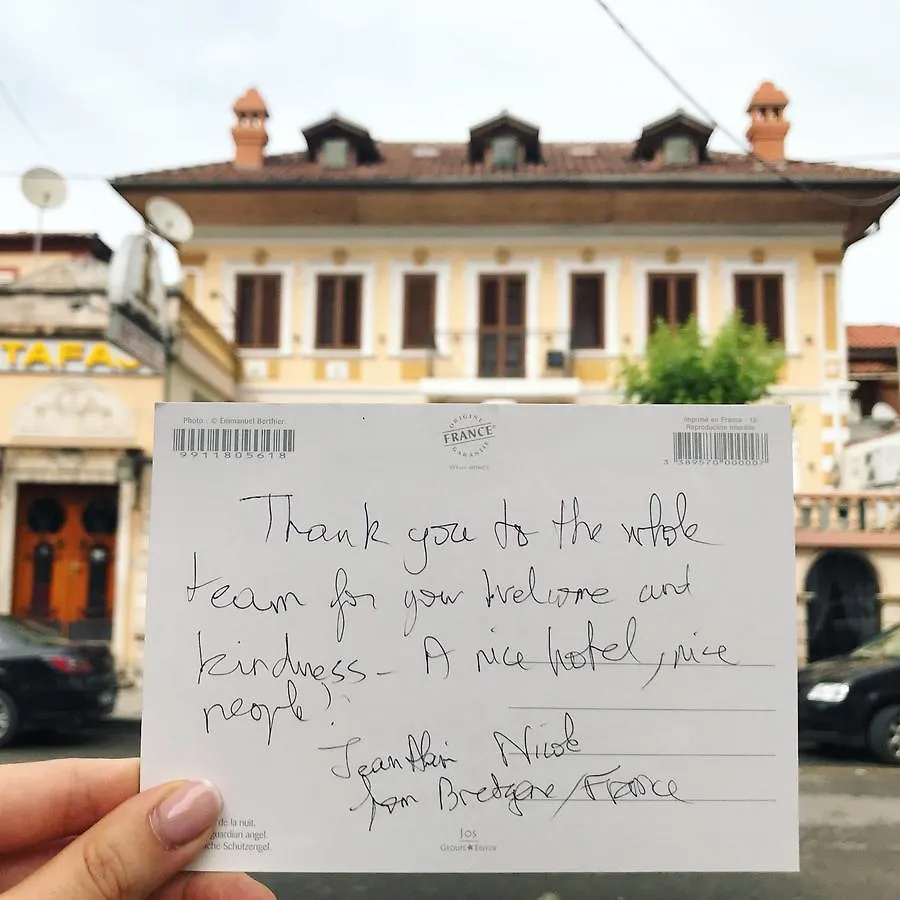 TAFA
Photo : © Emmanuel Berthier.
9911805618
ORIGINE
FRANCE
GARANTIE
Imprimé en France - 16
Reproduction interdite
3 389570 000007
Thank you to the whole
team for your welcome and
kindness - A nice hotel, nice
people!
Nicole
from Bretagne / France
de la nuit,
guardian angel.
che Schutzengel.
JOS
GROUPE EDITOR